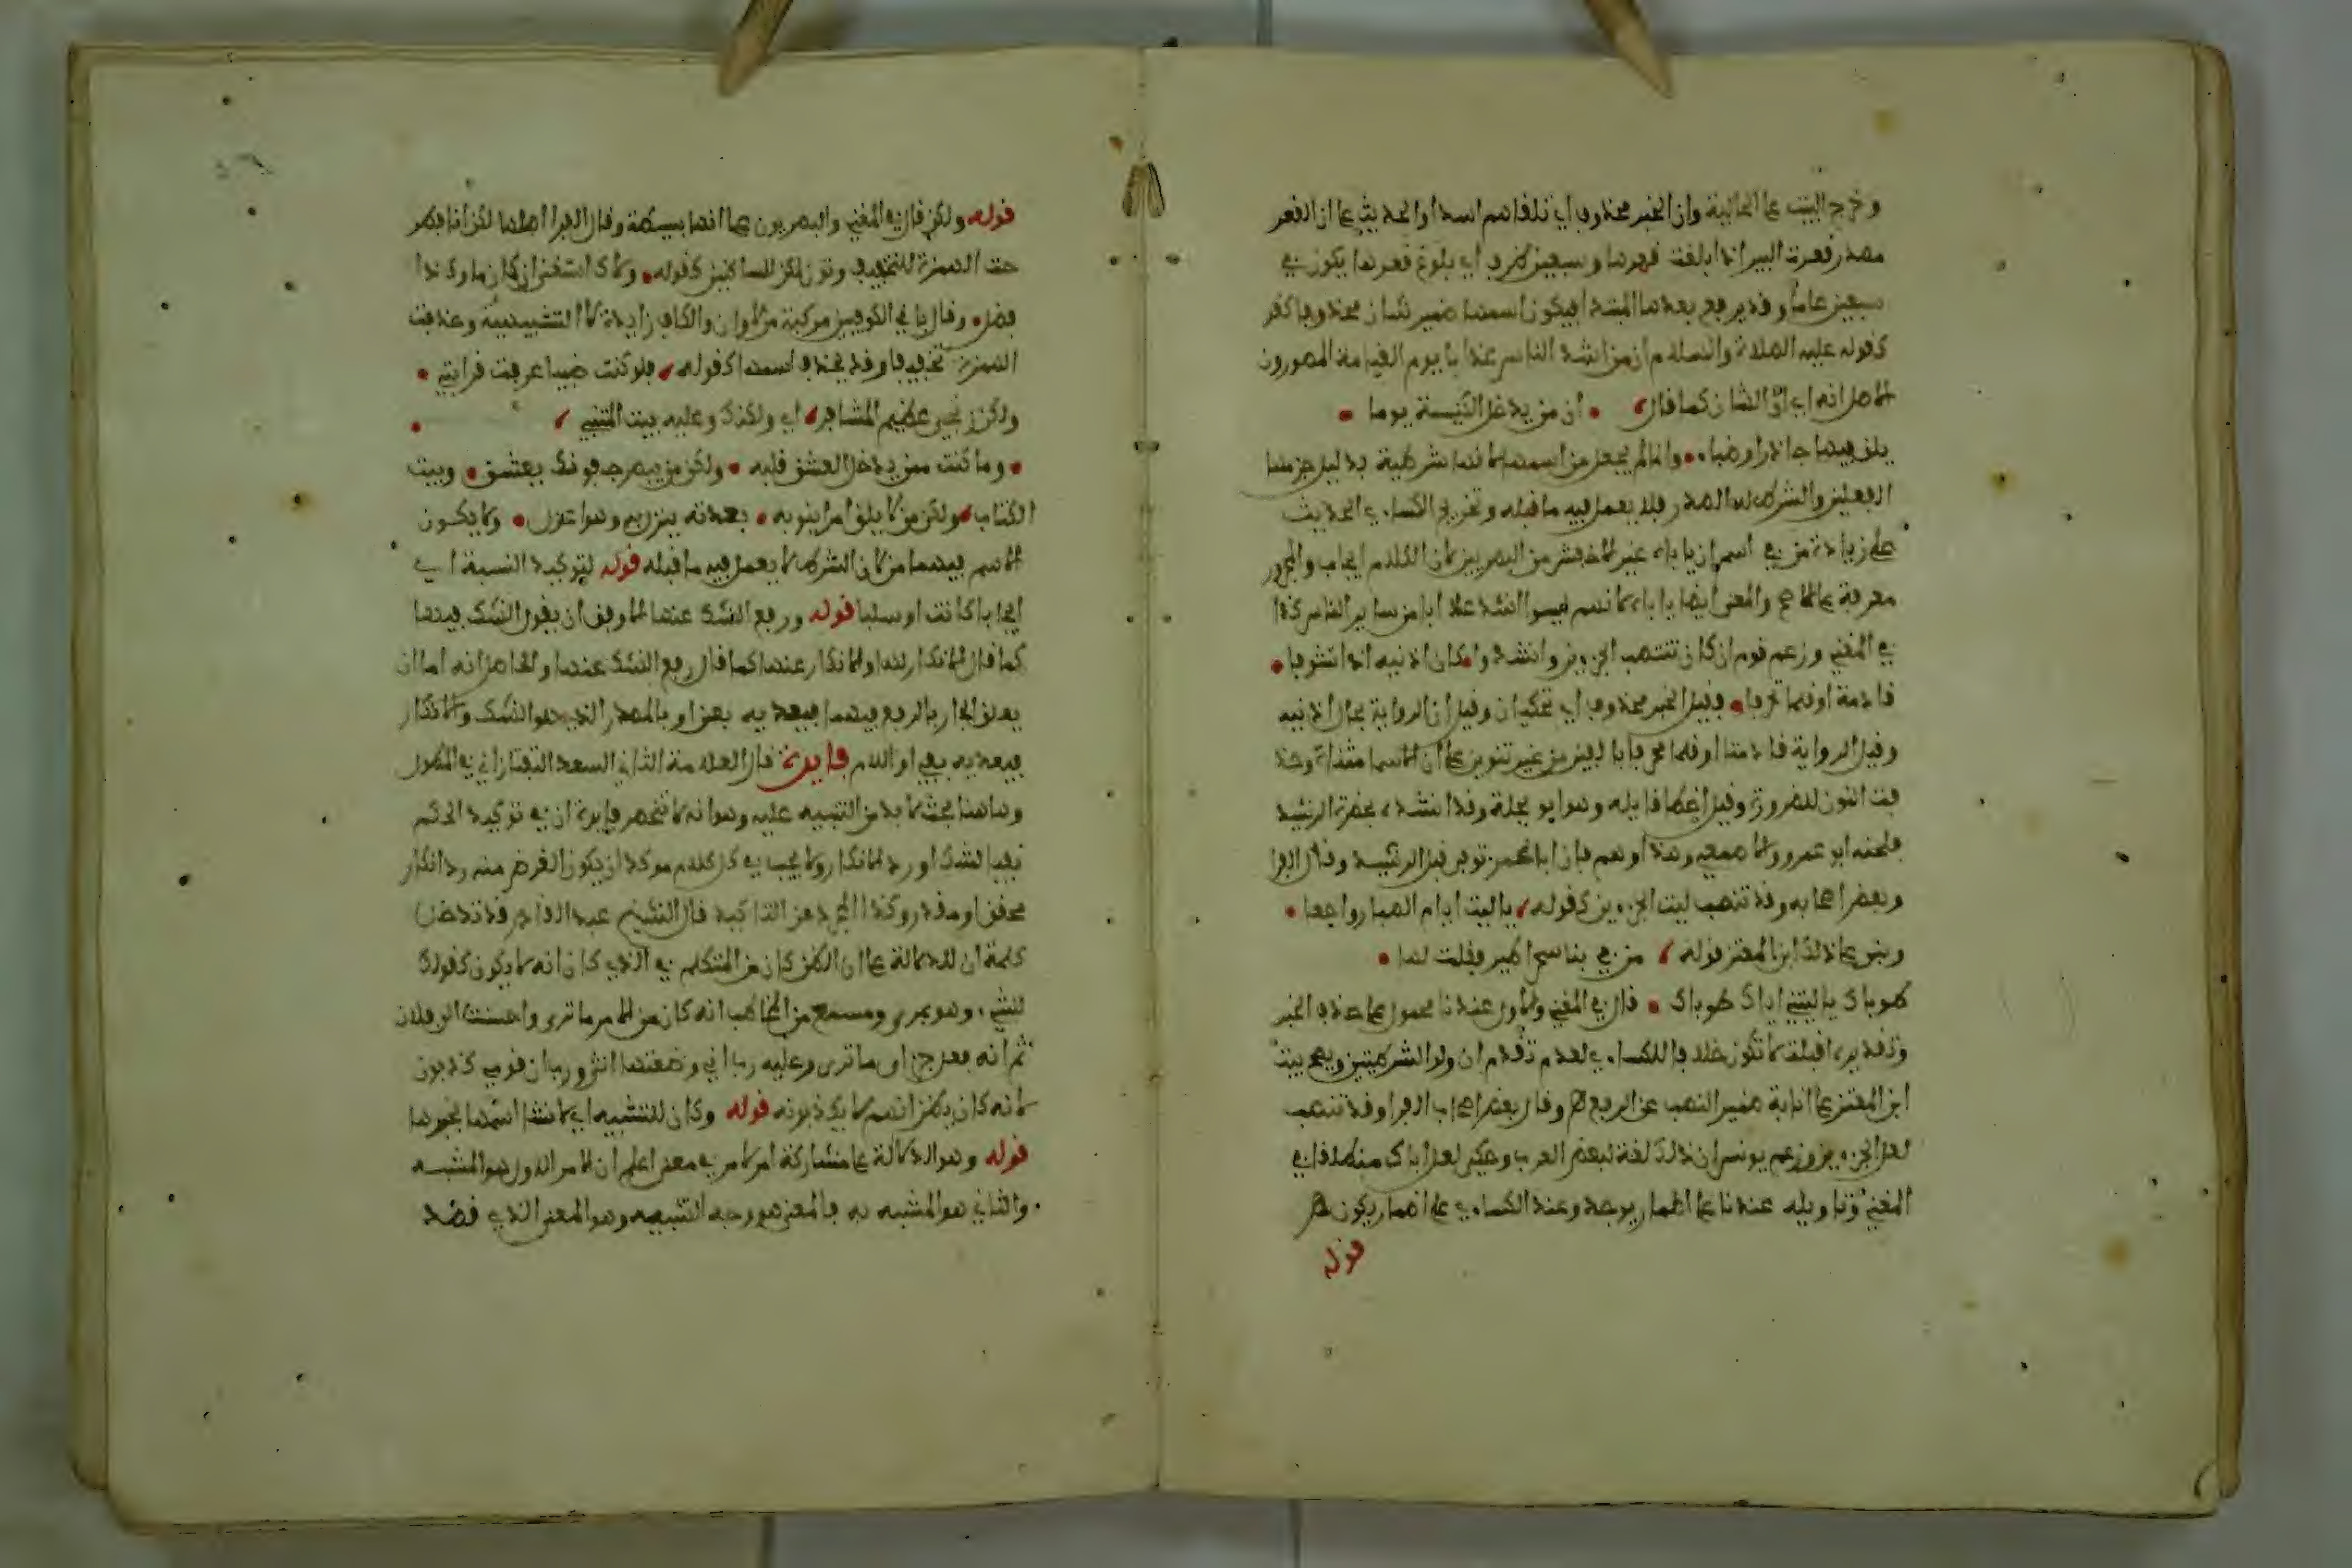 وخرج البيت على الحالية وان الخبر محذوف اي تلقاهم اسدا والحديث على ان القعر
مصدر قعرت البير اذا بلغت قعرها وسبعين ظرف اي بلوغ قعرها يكون في
سبعين عاما وقد يرفع بعدها المبتدا فيكون اسمها ضمير شان محذوفا كقو
كقوله عليه الصلاة والسلام ان من اشد الناس عذابا يوم القيامة المصورون
الاصل انه اي ان الشان كما قال ان من يدخل الكنيسة يوما
يلق فيها جاذرا وظباء وانما لم يجعل من اسمها لانها شرطية بدليل جزمها
الفعلين والشرط له الصدر فلا يعمل فيه ما قبله وتخريج الكساءي الحديث
على زيادة من في اسم ان ياباه غير الاخفش من البصريين لان الكلام ايجاب والمجرور
معرفة على الاصح والمعنى ايضا ياباه لانهم ليسوا اشد عذابا من ساير الناس كذا
في المغني وزعم قوم ان كان تنصب الجزءين وانشدوا كان اذنيه اذا تشوفا
قادمة او قلما محرفا فقيل الخبر محذوف اي تحكيان وقيل ان الرواية تخال اذنيه
وقيل الرواية قادمتا او قلما محرفا بالفين من غير تنوين على ان الاسما مثناة وحذ
فت النون للضرورة وقيل اخطا قايله وهو ابو نخيلة وقد انشده بحضرة الرشيد
فلحنه ابو عمرو والاصمعي وهذا وهم فان ابا عمرو توفي قبل الرشيد وقال الفرا
وبعض اصحابه وقد تنصب ليت الجزءين كقوله يا ليت ايام الصبا رواجعا
وبنى على ذلك ابن المعتز قوله مرت بنا سحرا طير فقلت لها
طوباك يا ليتني اياك طوباك قال في المغني والاول عندنا محمول على حذف الخبر
وتقديره اقبلت لا تكون خلافا للكساءي لعدم تقدم ان ولو الشرطيتين ويصح بيت
ابن المعتز على انابة ضمير النصب عن الرفع اه وقال بعض اصحاب الفرا وقد تنصب
لعل الجزءين وزعم يونس ان ذلك لغة لبعض العرب وحكى لعل اباك منطلقا في
المغني وتاويله عندنا على اضمار يوجد وعند الكساءي على اضمار يكون اه
قوله
قوله ولكن قال في المغني والبصريون على انها بسيطة وقال الفرا اصلها لكن ان فطر
حت الهمزة للتخفيف ونون لكن للساكنين كقوله ولاك اسقني ان كان ماوك ذا
فضل وقال باقي الكوفيين مركبة من لا وان والكاف زايدة لا التشبيهية وحذفت
الهمزة تخفيفا وقد يحذف اسمها كقوله فلو كنت ضبيا عرفت قرابتي
ولكن زنجي عظيم المشافر اي ولكنك وعليه بيت المتنبي
وما كنت ممن يدخل العشق قلبه ولكن من يبصر جفونك يعشق وبيت
الكتاب ولكن من لا يلق امرا ينوبه بعدته ينزل به وهو اعزل ولا يكون
الاسم فيهما من لان الشرط لا يعمل فيه ما قبله قوله لتوكيد النسبة اي
ايجابا كانت او سلبا قوله ورفع الشك عنها الاوفق ان يقول الشك فيها
كما قال الانكار لها والانكار عنها كما قال رفع الشك عنها والحاصل انه اما ان
يعلق الجار بالرفع فيهما فيعديه بعن او بالمصدر الذي هو الشك والانكار
فيعديه بفي او اللام فايدة قال العلامة الثاني السعد التفتازاني في المطول
وهاهنا بحث لا بد من التنبيه عليه وهو انه لا تنحصر فايدة ان في توكيد الحكم
نفيا لشك او رد الانكار ولا يجب في كل كلام موكد ان يكون الغرض منه رد انكار
محقق او مقدر وكذا المجرد عن التاكيد قال الشيخ عبد القاهر قد تدخل
كلمة ان للدلالة على ان الظن كان من المتكلم في الذي كان انه لا يكون كقولك
للشيء وهو بمرءى ومسمع من المخاطب انه كان من الامر ما ترى واحسنت الى فلان
ثم انه فعل جزاي ما ترى وعليه رب اني وضعتها انثى ورب ان قومي كذبون
لانه كان يظن انهم لا يكذبونه قوله وكان للتشبيه اي لانشا اسمها بخبرها
قوله وهو الدلالة على مشاركة امر لامر في معنى اعلم ان الامر الاول هو المشبه
والثاني هو المشبه به والمعنى هو وجه التشبيه وهو المعنى الذي قصد